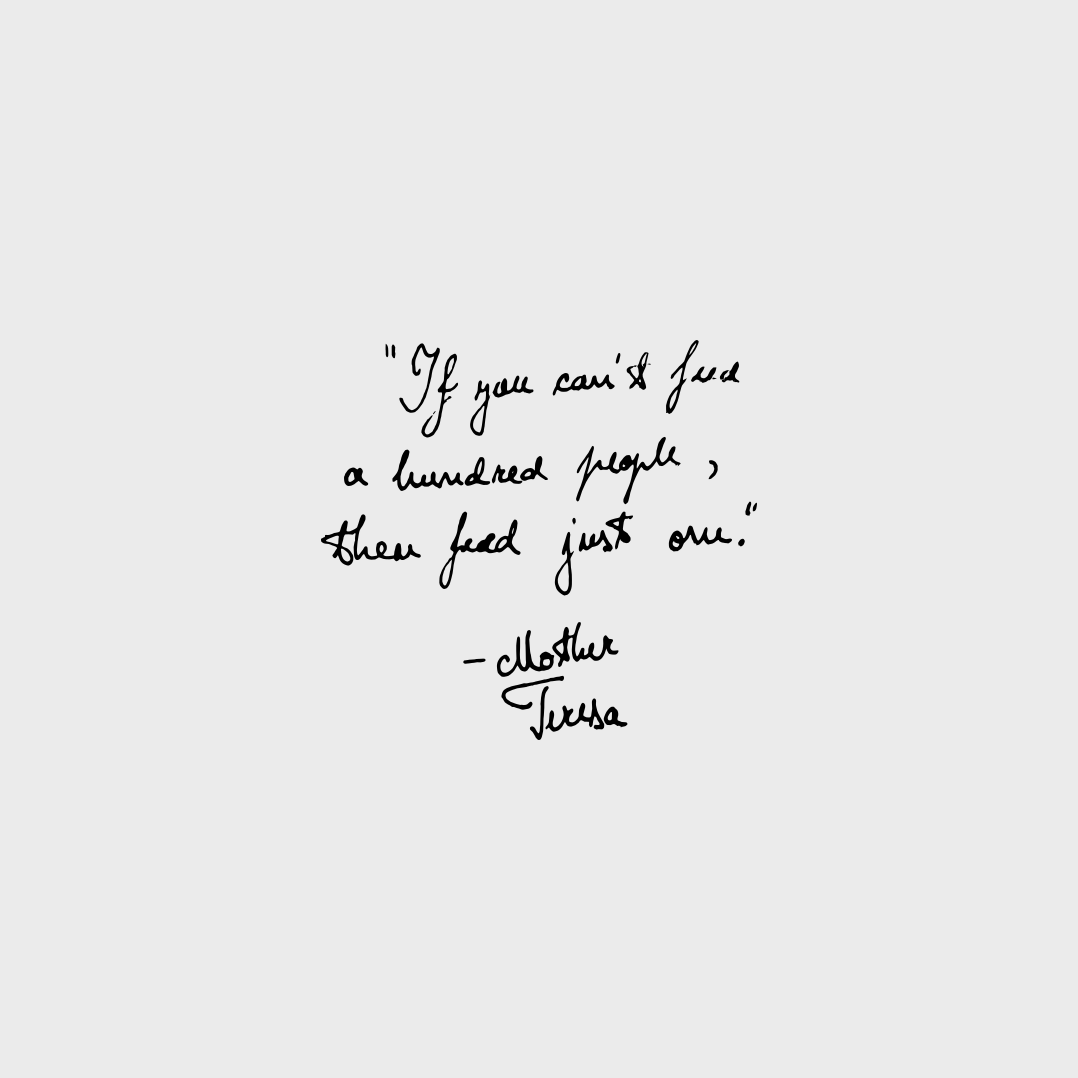 "If you can't feed
a hundred people,
then feed just one."
- Mother
Teresa